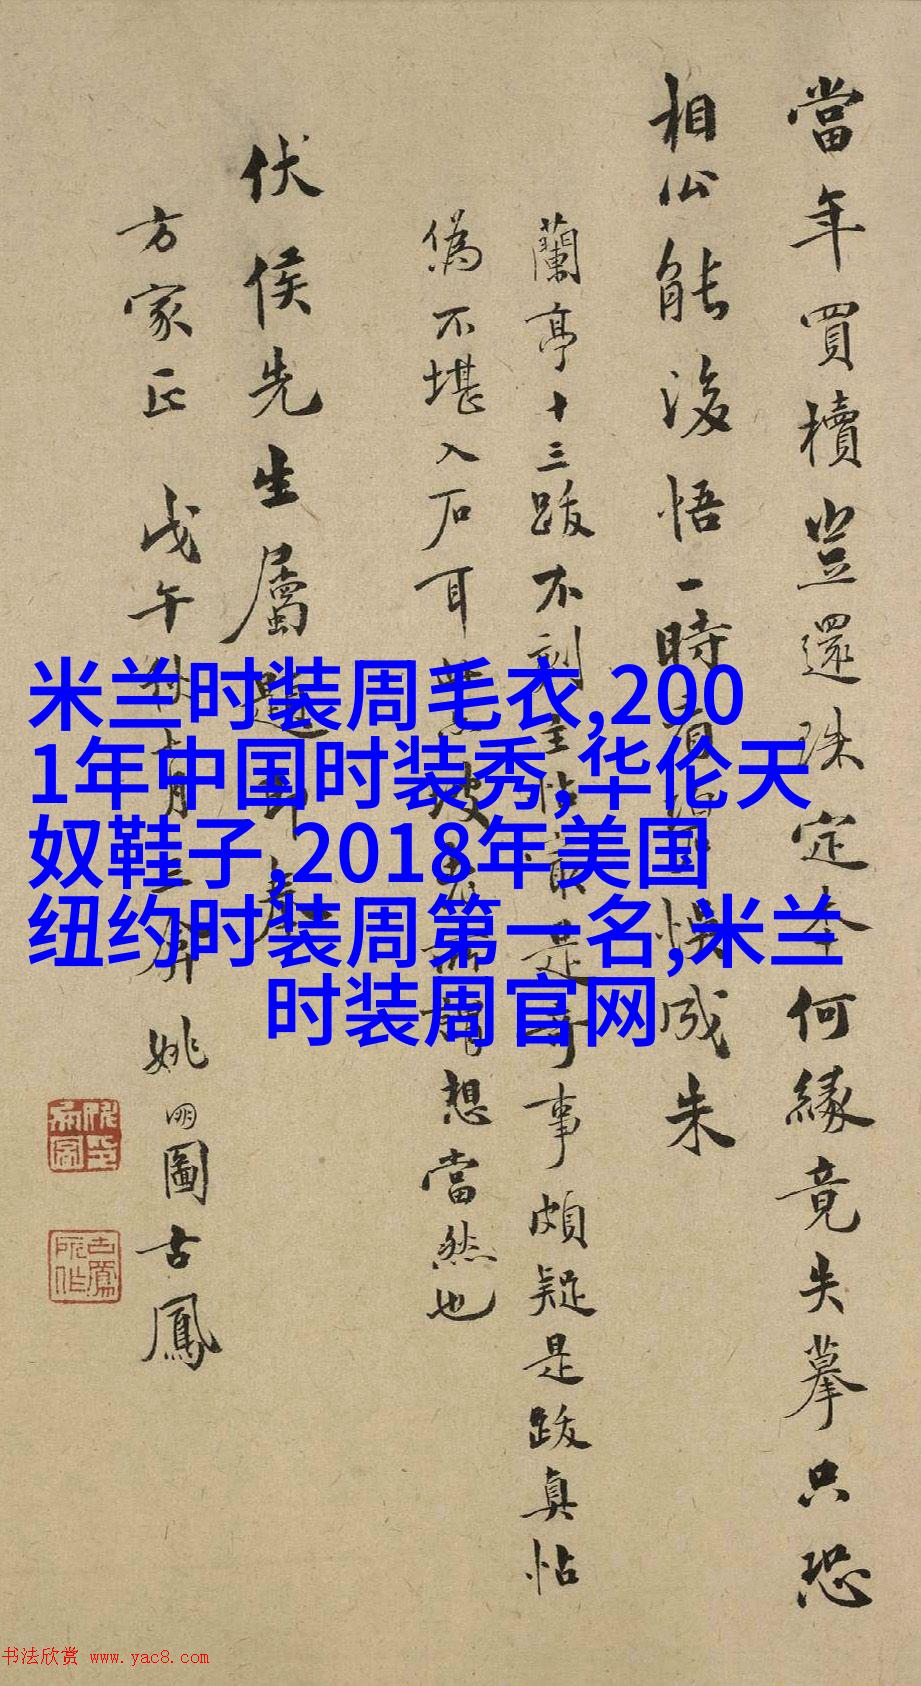 當年買櫝豈還珠定本何緣竟失摹只恐
相公能後悟一時有誤成朱
蘭亭十三跋不刻主帖最是奇事頗疑是跋真帖
偽不堪入石耳想當然也
伏侯先生屬題即奉
方家正 戊午秋七月三屏 姚朙圖古鳳
米兰时装周毛衣,200
1年中国时装秀,华伦天
奴鞋子,2018年美国
纽约时装周第一名,米兰
时装周官网
书法欣赏 www.yac8.com